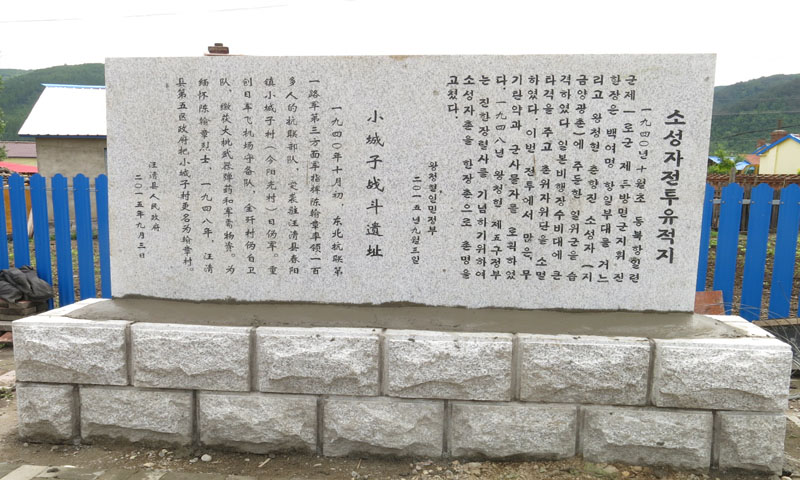 소성자전투유적지
一九四○年十월초, 동북항일련
군제一로군 제三방면군지휘 진
한장은 백여명 항일부대를 거느
리고 왕청현 춘양진 소성자 (지
금양광촌)에 주둔한 일위군을 습
격하였다. 일본비행장수비대에 큰
타격을 주고 촌위자위단을 소멸
하였다. 이번 전투에서 많은 무
기탄약과 군사물자를 로획하였
다. 一九四八년 왕청현 제五구정부
는 진한장렬사를 기념하기위하여
소성자촌을 한장촌으로 촌명을
고쳤다.
왕청현인민정부
二○一五년九월三일
小城子战斗遗址
一九四○年十月初，东北抗联第
一路军第三方面军指挥陈翰章率领一百
多人的抗联部队，突袭驻汪清县春阳
镇小城子村（今阳光村）日伪军。重
创日军飞机场守备队，全歼村伪自卫
队，缴获大批武器弹药和军需物资。为
缅怀陈翰章烈士，一九四八年，汪清
县第五区政府把小城子村更名为翰章村。
汪清县人民政府
二○一五年九月三日